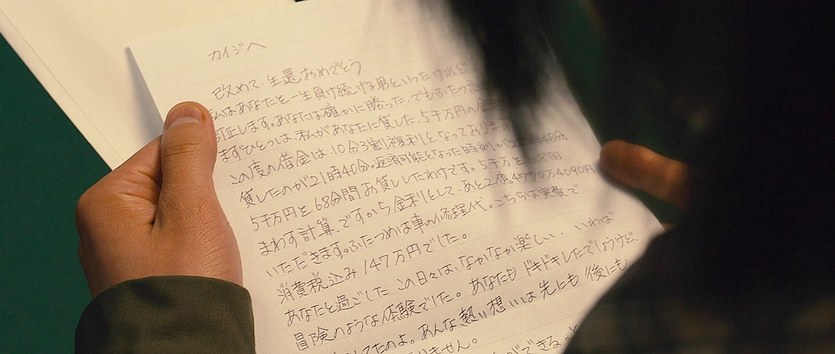 カイジへ
改めて 生還おめでとう
私はあなたと一生負け続ける男といったけれど
訂正します。あなたは確かに勝った。でもたった
まずひとつは、私があなたに貸した、5千万円の
この度の借金は10分3割複利となっており
貸したのが21時40分。返済可能となった時刻が
5千万円を68分間お貸ししたわけです。5千万を 回
まわす計算。ですから金利として、あと2億4790万4090円
いただきます。ふたつめは車の修理代。こちらは実費で
消費税込み147万円でした。
あなたと過ごしたこの日々は、なかなか楽しい、いわば
冒険のような体験でした。あなたもドキドキしたでしょうけど、
してたのよ。あんな熱い想いは先にも 後にも
りません。
ができる